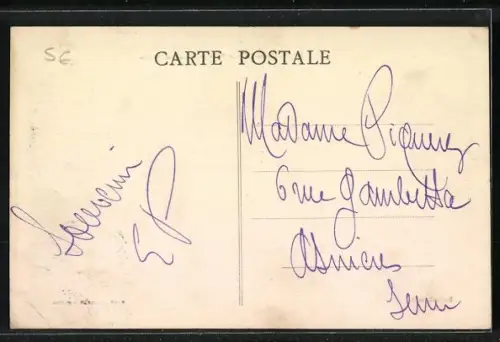 56
CARTE POSTALE
Souvenir
EP
Madame Piquerez
6 rue Gambetta
Asnieres
Seine